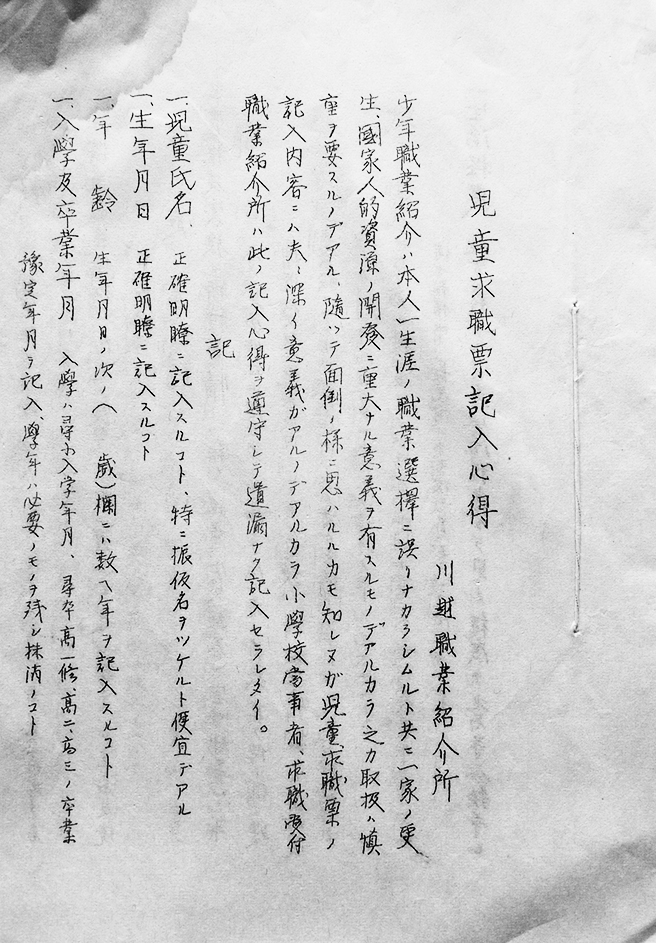 児童求職票記入心得
川越職業紹介所
少年職業紹介ハ本人一生涯ノ職業選擇ニ誤リナカラシムルト共ニ一家ノ更
生、國家人的資源ノ開発ニ重大ナル意義ヲ有スルモノデアルカラ之カ取扱ハ慎
重ヲ要スルノデアル、隨ツテ面倒ノ様ニ思ハルルカモ知レヌガ児童求職票ノ
記入内容ニハ夫々深イ意義ガアルノデアルカラ小學校當事者、求職受付
職業紹介所ハ此ノ記入心得ヲ遵守シテ遺漏ナク記入セラレタイ。
記
一、児童氏名、正確明瞭ニ記入スルコト、特ニ振仮名ヲツケルト便宜デアル
一、生年月日 正確明瞭ニ記入スルコト
一、年 齢 生年月日ノ次ノ( 歳)欄ニハ数ヘ年ヲ記入スルコト
一、入學及卒業年月 入學ハ尋小入学年月、尋卒高一修、高二、高三ノ卒業
豫定年月ヲ記入、學年ハ必要ノモノヲ残シ抹消ノコト